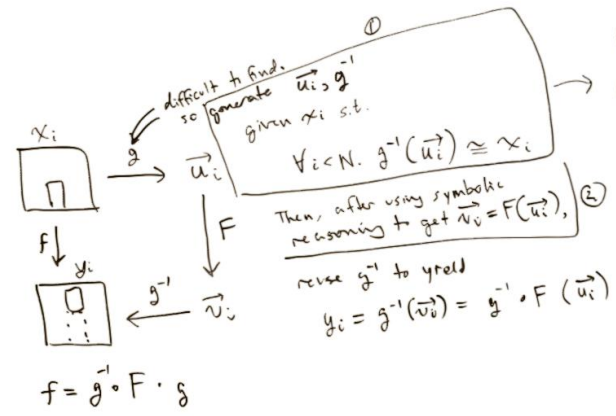 ①
difficult to find.
so generate u⃗ᵢ, g⁻¹
given xᵢ s.t.
∀i<N. g⁻¹(u⃗ᵢ) ≅ xᵢ
xᵢ
g
u⃗ᵢ
Then, after using symbolic
reasoning to get v⃗ᵢ = F(u⃗ᵢ),
②
f
F
reuse g⁻¹ to yield
yᵢ = g⁻¹(v⃗ᵢ) = g⁻¹ ∘ F (u⃗ᵢ)
yᵢ
g⁻¹
v⃗ᵢ
f = g⁻¹ ∘ F ∘ g